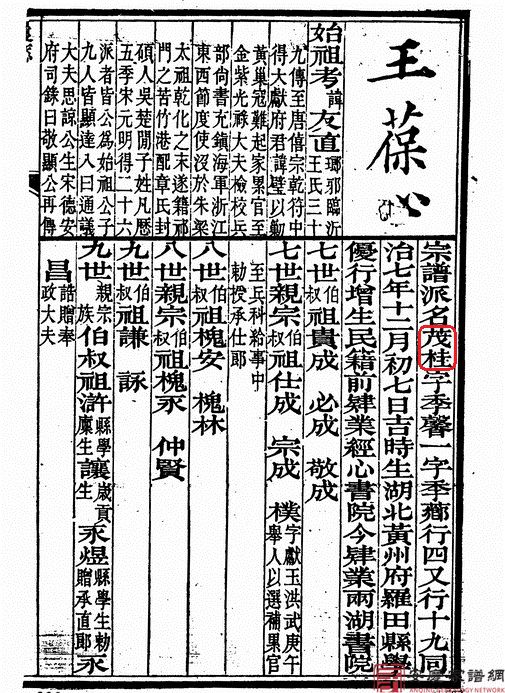 王葆心
宗譜派名茂桂字季馨一字季薌行四又行十九同
治七年十二月初七日吉時生湖北黃州府羅田縣學
優行增生民籍前肄業經心書院今肄業兩湖書院
始祖考諱友直瑯邪臨沂王氏三十
九傳至唐僖宗乾符中
得大獻府君諱璧以勦
黃巢冠難起家累官至
金紫光祿大夫檢校兵
部尚書充鎮海軍浙江
東西節度使沒於朱梁
太祖乾化之末遂籍祁
門之苦竹港配章氏封
碩人吳楚閒子姓凡歷
五季宋元明得二十六
派者皆公為始祖公子
九人皆顯達入曰通議
大夫思諒公生宋德安
府司錄曰敬顯公再傳
七世伯叔祖貴成 必成 敬成
七世親宗伯叔祖仕成 宗成 樸字獻玉洪武庚午舉人以選補果官
至兵科給事中
勅授承仕郎
八世伯叔祖槐安 槐林
八世親宗伯叔祖槐永 仲賢
九世伯叔祖謙 詠
九世親宗族伯叔祖滸縣學廩生讓歲貢生永煜縣學生勅贈承直郎永
昌誥贈奉政大夫
家譜網